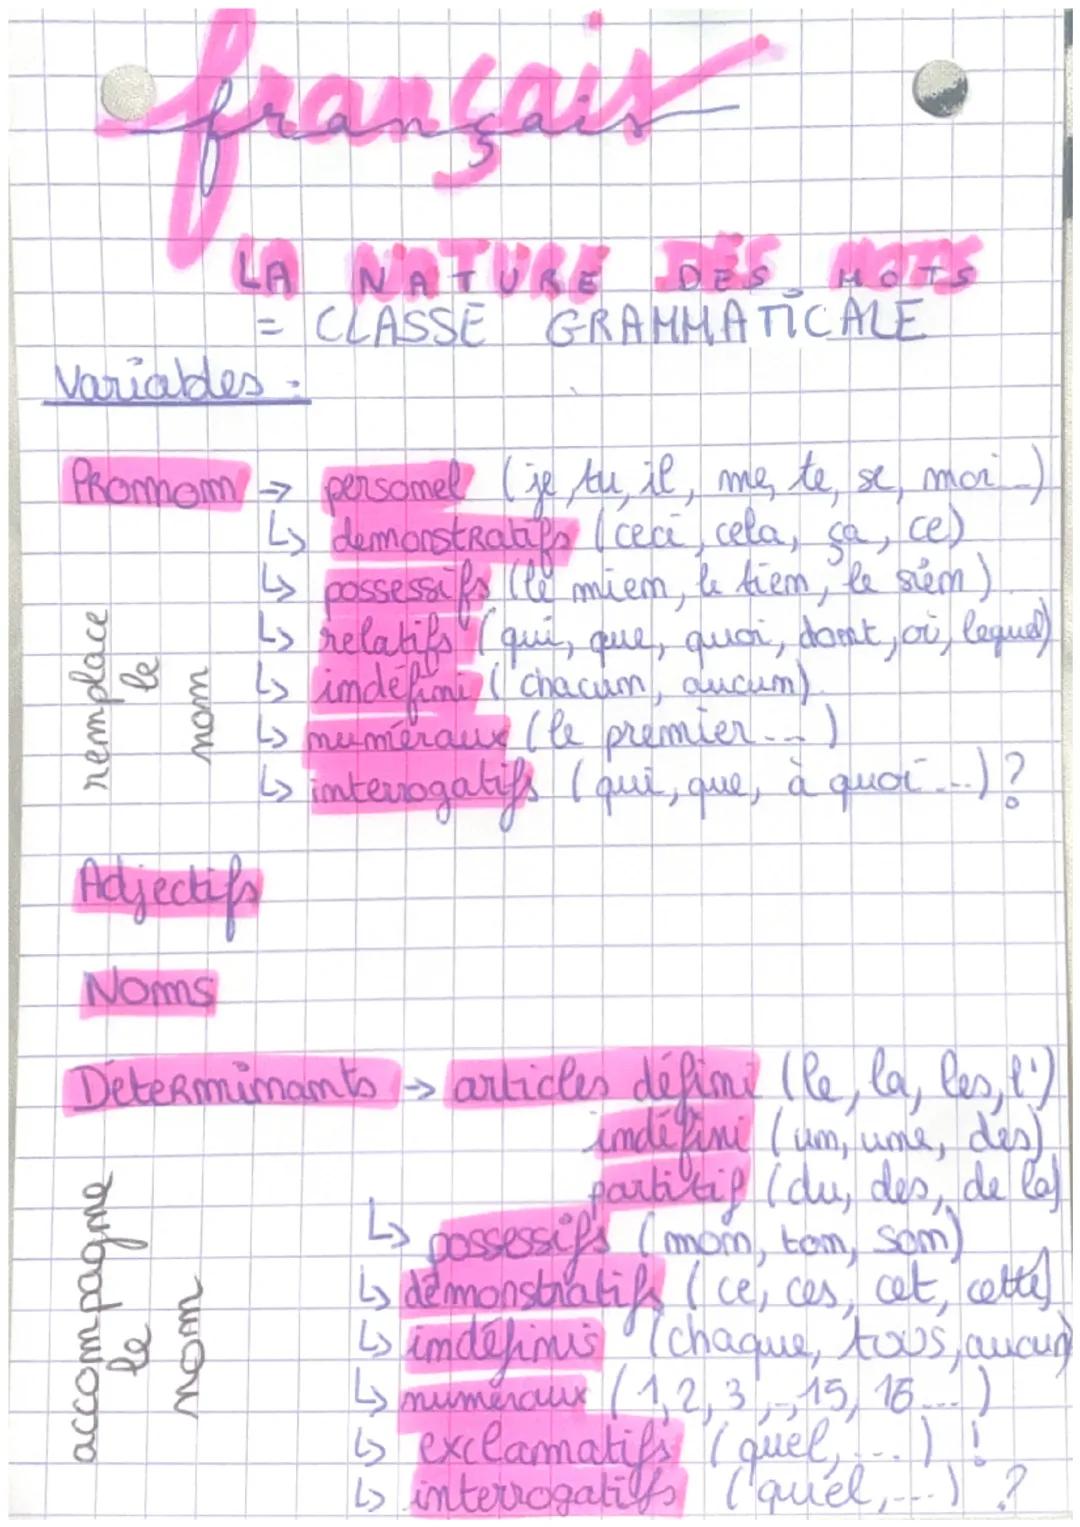 français
LA NATURE DES MOTS
= CLASSE GRAMMATICALE
Variables :
Pronom → personel (je, tu, il, me, te, se, moi...)
↳ demonstratifs (ceci, cela, ça, ce)
↳ possessifs (le mien, le tien, le sien)
↳ relatifs (qui, que, quoi, dont, où, lequel)
↳ indéfini (chacun, aucun)
↳ numéraux (le premier...)
↳ interrogatifs (qui, que, à quoi...) ?
remplace
le
nom
Adjectifs
Noms
Determinants → articles défini (le, la, les, l')
indéfini (un, une, des)
partitif (du, des, de la)
↳ possessifs (mon, ton, son)
↳ démonstratifs (ce, ces, cet, cette)
↳ indéfinis (chaque, tous, aucun)
↳ numéraux (1, 2, 3, ..., 15, 16...)
↳ exclamatifs (quel, ...) !
↳ interrogatifs (quel, ...) ?
accompagne
le
nom